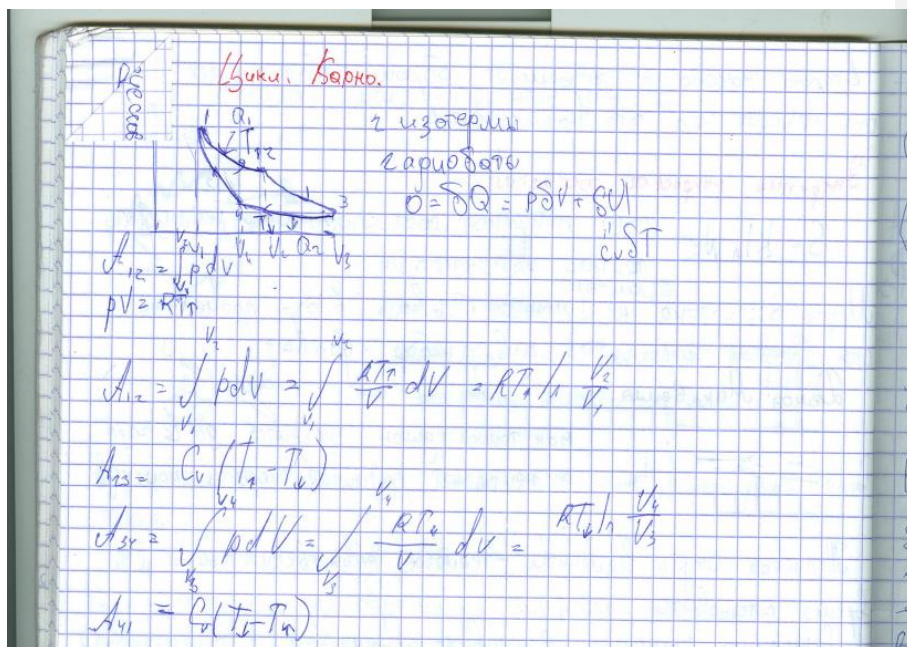 Цикл. Карно.
1 Q₁
T↑ 2
4
3
T↓
V₁ V₄ V₂ Q₂ V₃
2 изотермы
2 адиабаты
0 = δQ = pδV + δU
c_vδT
A₁₂ = ∫pdv
pV = RT↑
A₁₂ = ∫_{V₁}^{V₂} pdV = ∫_{V₁}^{V₂} RT↑/V dV = RT↑ ln V₂/V₁
A₂₃ = C_v (T↑ - T↓)
A₃₄ = ∫_{V₃}^{V₄} pdV = ∫_{V₃}^{V₄} RT↓/V dv = RT↓ ln V₄/V₃
A₄₁ = C_v(T↓ - T↑)